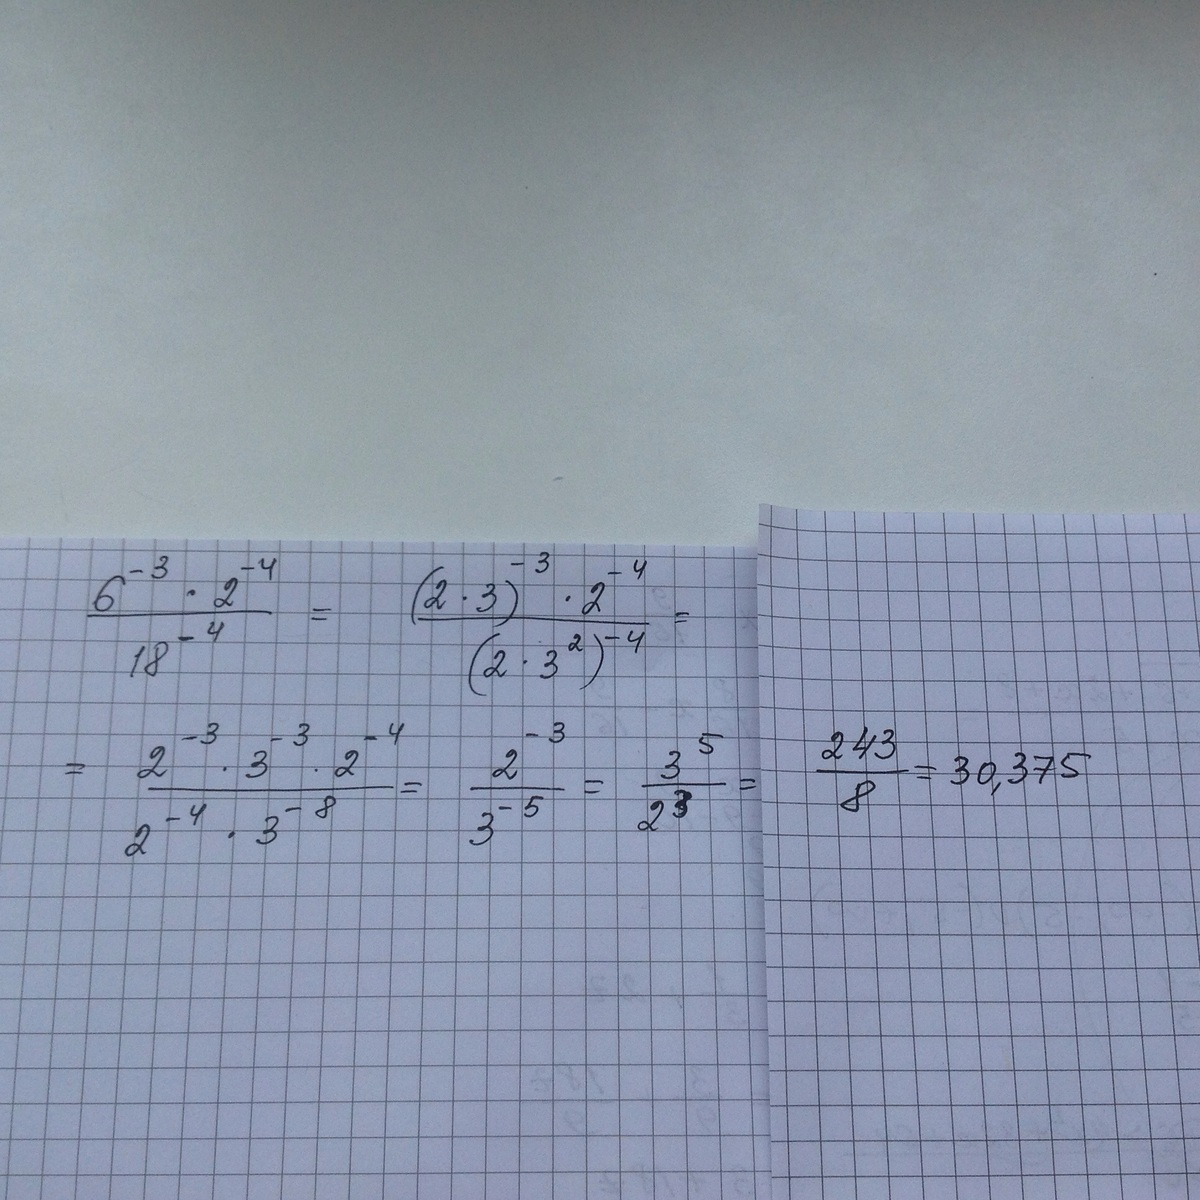 6⁻³ · 2⁻⁴ / 18⁻⁴ = (2 · 3)⁻³ · 2⁻⁴ / (2 · 3²)⁻⁴ =
= 2⁻³ · 3⁻³ · 2⁻⁴ / 2⁻⁴ · 3⁻⁸ = 2⁻³ / 3⁻⁵ = 3⁵ / 2³ = 243 / 8 = 30,375